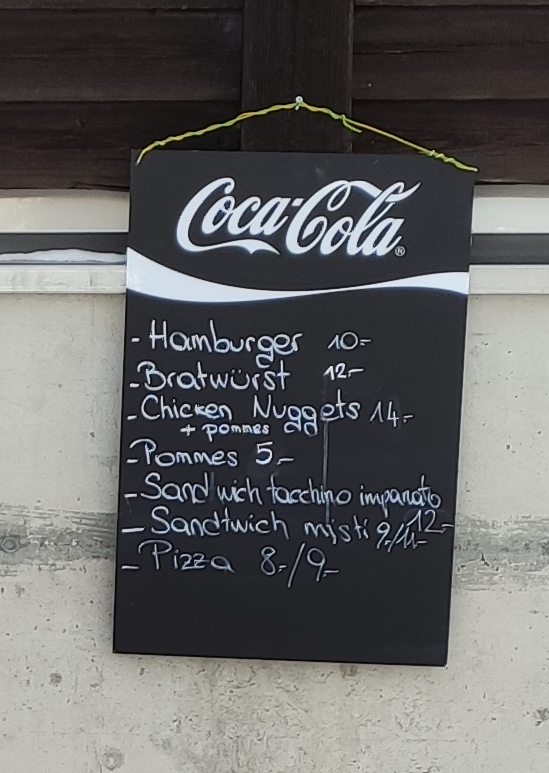 Coca-Cola®
- Hamburger 10.-
- Bratwürst 12.-
- Chicken Nuggets 14.-
+ pommes
- Pommes 5.-
- Sandwich tacchino impanato
12.-
- Sandtwich misti 9.-/11.-
- Pizza 8.-/9.-